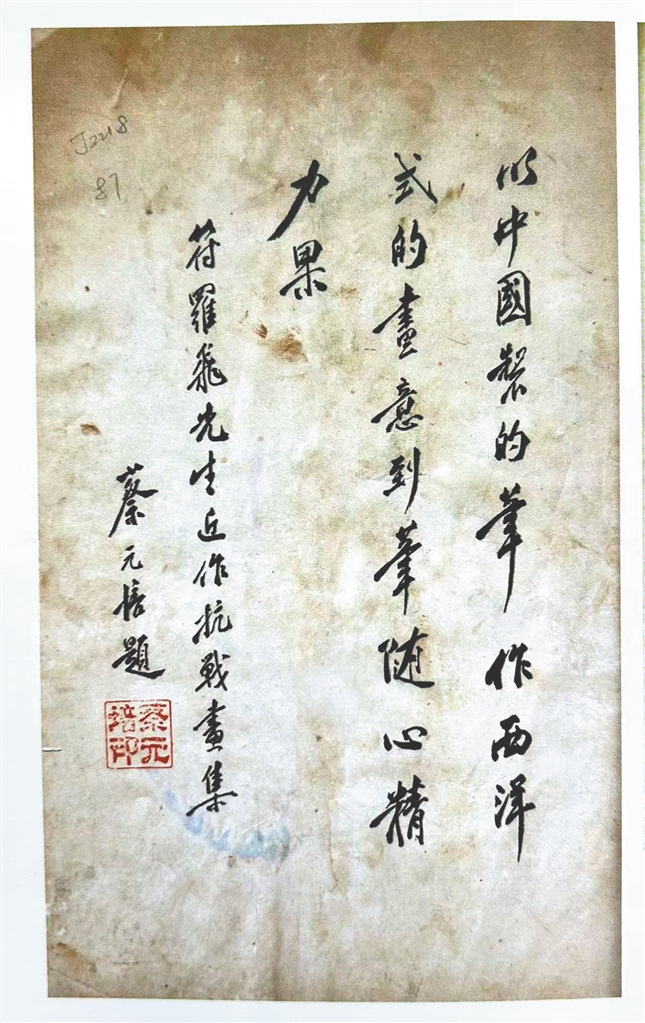 以中國製的筆作西洋
式的畫意到筆随心精
力果
符羅飛先生近作抗戰畫集
蔡元培題
蔡元
培印
J2218
87